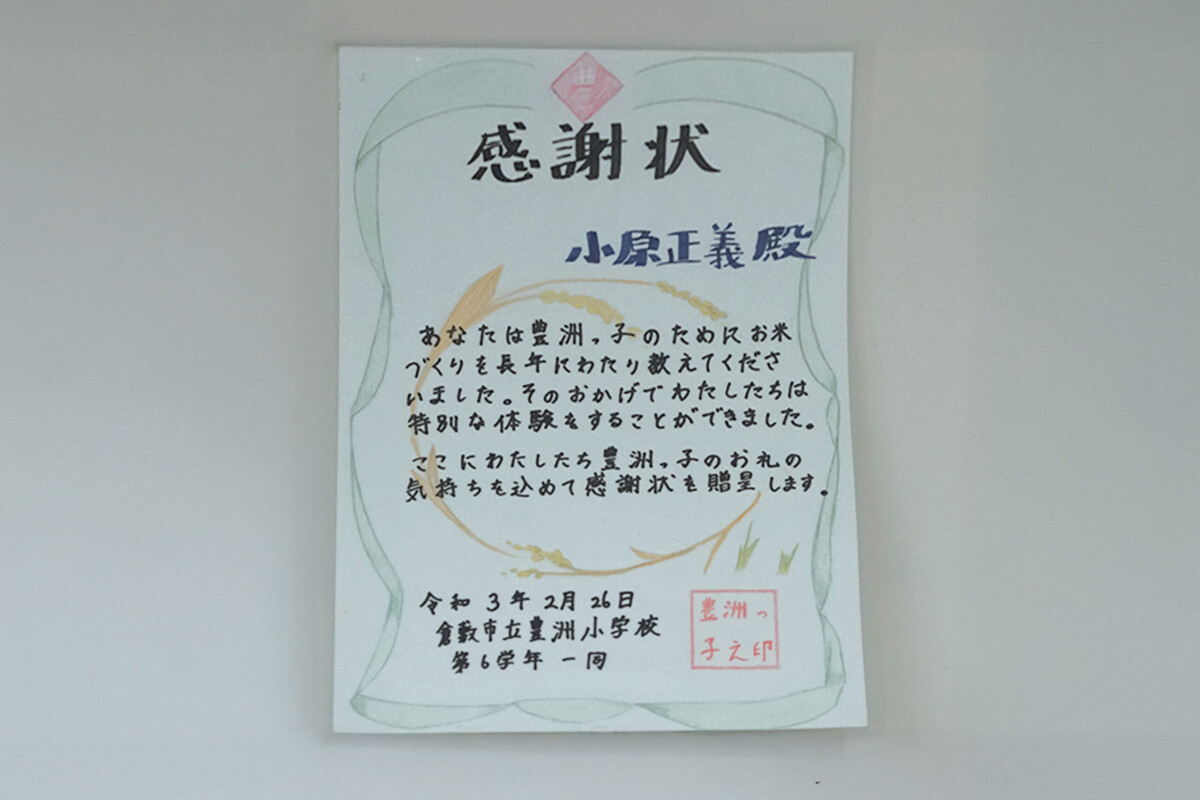 豊
感謝状
小原正義殿
あなたは豊洲っ子のためにお米
づくりを長年にわたり教えてくださ
いました。そのおかげでわたしたちは
特別な体験をすることができました。
ここにわたしたち豊洲っ子のお礼の
気持ちを込めて感謝状を贈呈します。
令和3年2月26日
倉敷市立豊洲小学校
第6学年一同
豊洲っ
子之印